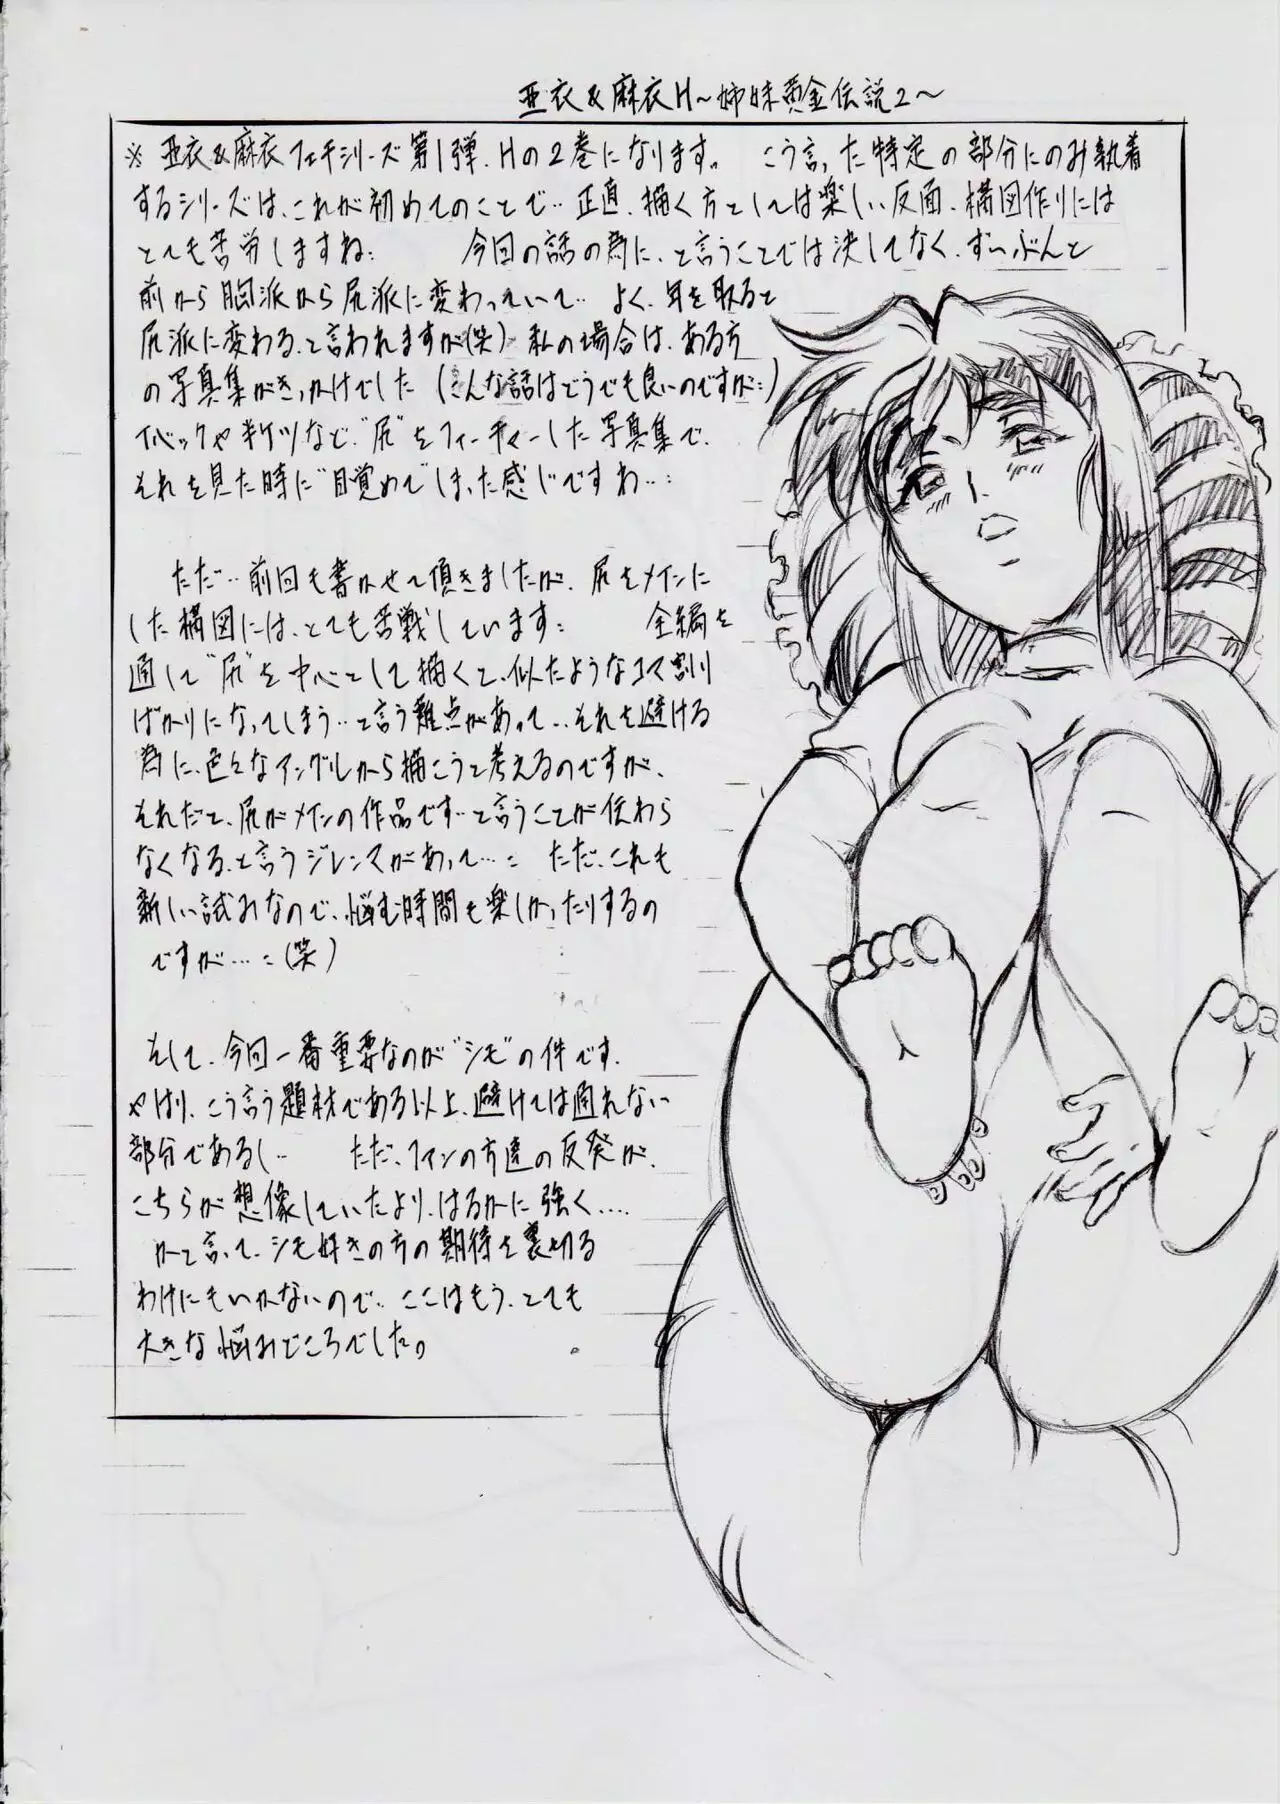 亜衣&麻衣H~姉妹黄金伝説2~
※ 亜衣&麻衣フェチシリーズ第1弾、Hの2巻になります。 こう言った特定の部分にのみ執着
するシリーズは、これが初めてのことで… 正直、描く方としては楽しい反面、構図作りには
とても苦労しますね… 今回の話の為に、と言うことでは決してなく、ずいぶんと
前から胸派から尻派に変わっていて… よく、年を取ると
尻派に変わる、と言われますが(笑) 私の場合は、ある方
の写真集がきっかけでした (こんな話はどうでも良いのですが…)
Tバックや半ケツなど、"尻"をフィーチャーした写真集で、
それを見た時に"目覚めて"しまった感じですわ…
ただ…前回も書かせて頂きましたが、尻をメインに
した構図には、とても苦戦しています… 全編を
通して"尻"を中心として描くと、似たようなコマ割り
ばかりになってしまう…と言う難点があって…それを避ける
為に、色々なアングルから描こうと考えるのですが、
それだと、尻がメインの作品です…と言うことが伝わら
なくなる、と言うジレンマがあって… ただ、これも
新しい試みなので、悩む時間も楽しかったりするの
ですが…(笑)
そして、今回一番重要なのが"シモ"の件です。
やはり、こう言う題材である以上、避けては通れない
部分であるし… ただ、ファンの方達の反発が、
こちらが想像していたより、はるかに強く….
かと言って、シモ好きの方の期待を裏切る
わけにもいかないので、ここはもう、とても
大きな悩みどころでした。
4